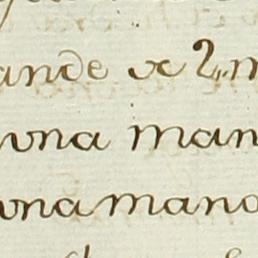 ande x 2,, m
vna man
vna mano